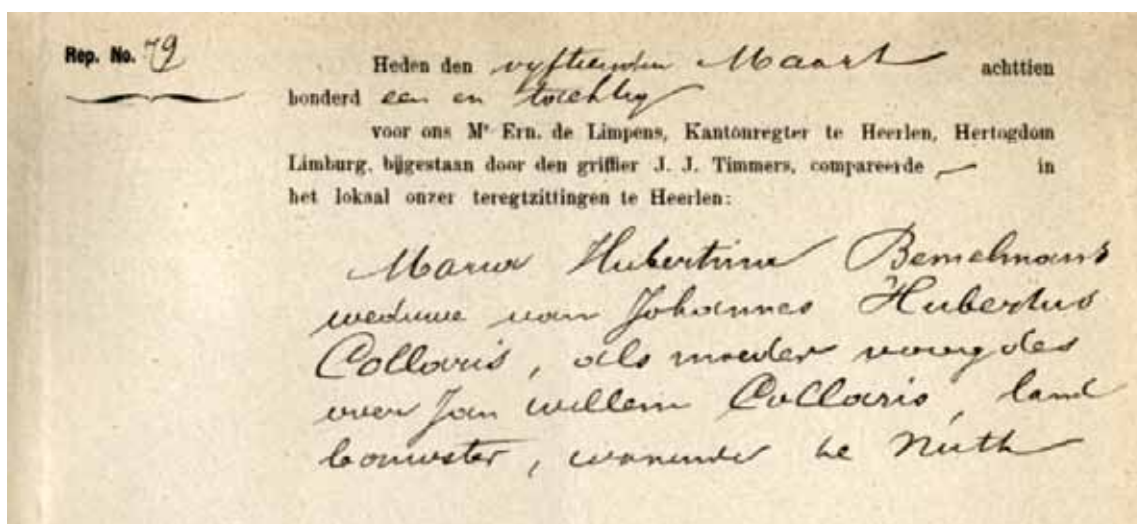 Rep. No. 79
Heden den vyftienden Maart achttien
honderd een en tachtig
voor ons Mr Ern. de Limpens, Kantonregter te Heerlen, Hertogdom
Limburg, bijgestaan door den griffier J. J. Timmers, compareerde — in
het lokaal onzer teregtzittingen te Heerlen:
Maria Hubertina Bemelmans
weduwe van Johannes Hubertus
Collaris, als moeder voogdes
over Jan willem Collaris, land
bouwster, wonende te Nuth